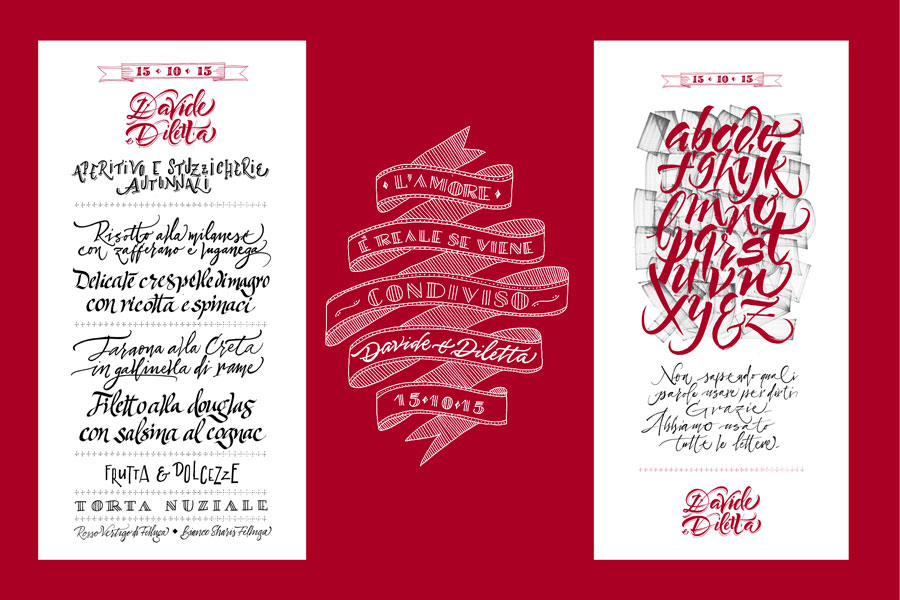 15 • 10 • 15
Davide
e Diletta
APERITIVO E STUZZICHERIE
AUTUNNALI
Risotto alla milanese
con zafferano e luganega
Delicate crespelle di magro
con ricotta e spinaci
Faraona alla Creta
in gallinella di rame
Filetto alla douglas
con salsina al cognac
FRUTTA & DOLCEZZE
TORTA NUZIALE
Rosso Vertigo di Felluga • Bianco Sharis Felluga
L'AMORE
È REALE SE VIENE
CONDIVISO
Davide & Diletta
15•10•15
15 • 10 • 15
abcde
fghijk
lmno
pqrst
uvwn
xy&z
Non sapendo quali
parole usare per dirti
Grazie
Abbiamo usato
tutte le lettere.
Davide
e Diletta